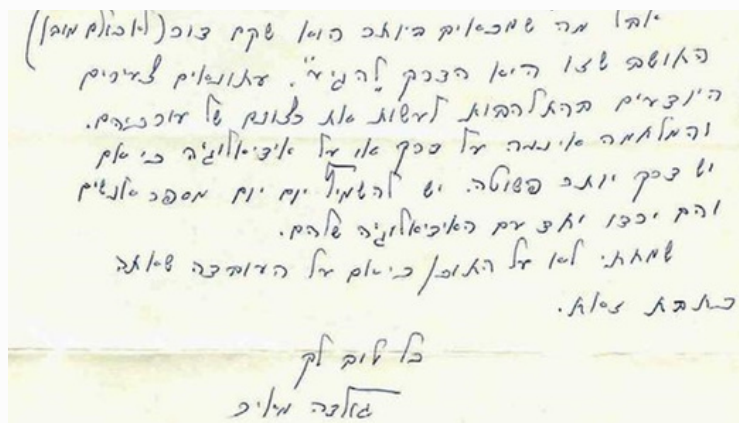 אבל מה שמכאיב ביותר הוא שקם דור (לא כולם מובן)
החושב שזו היא הדרך "להגיע". עתונאים צעירים
היודעים בהתלהבות לעשות את רצונם של עורכיהם.
והמלחמה איננה על דרך או על אידיאלוגיה כי אם
יש דרך יותר פשוטה. יש להשמיץ יום יום מספר אנשים
והם ירדו יחד עם האידיאלוגיה שלהם.
שמחתי לא על התוכן כי אם על העובדה שאתה
כתבת זאת.
כל טוב לך
גולדה מאיר